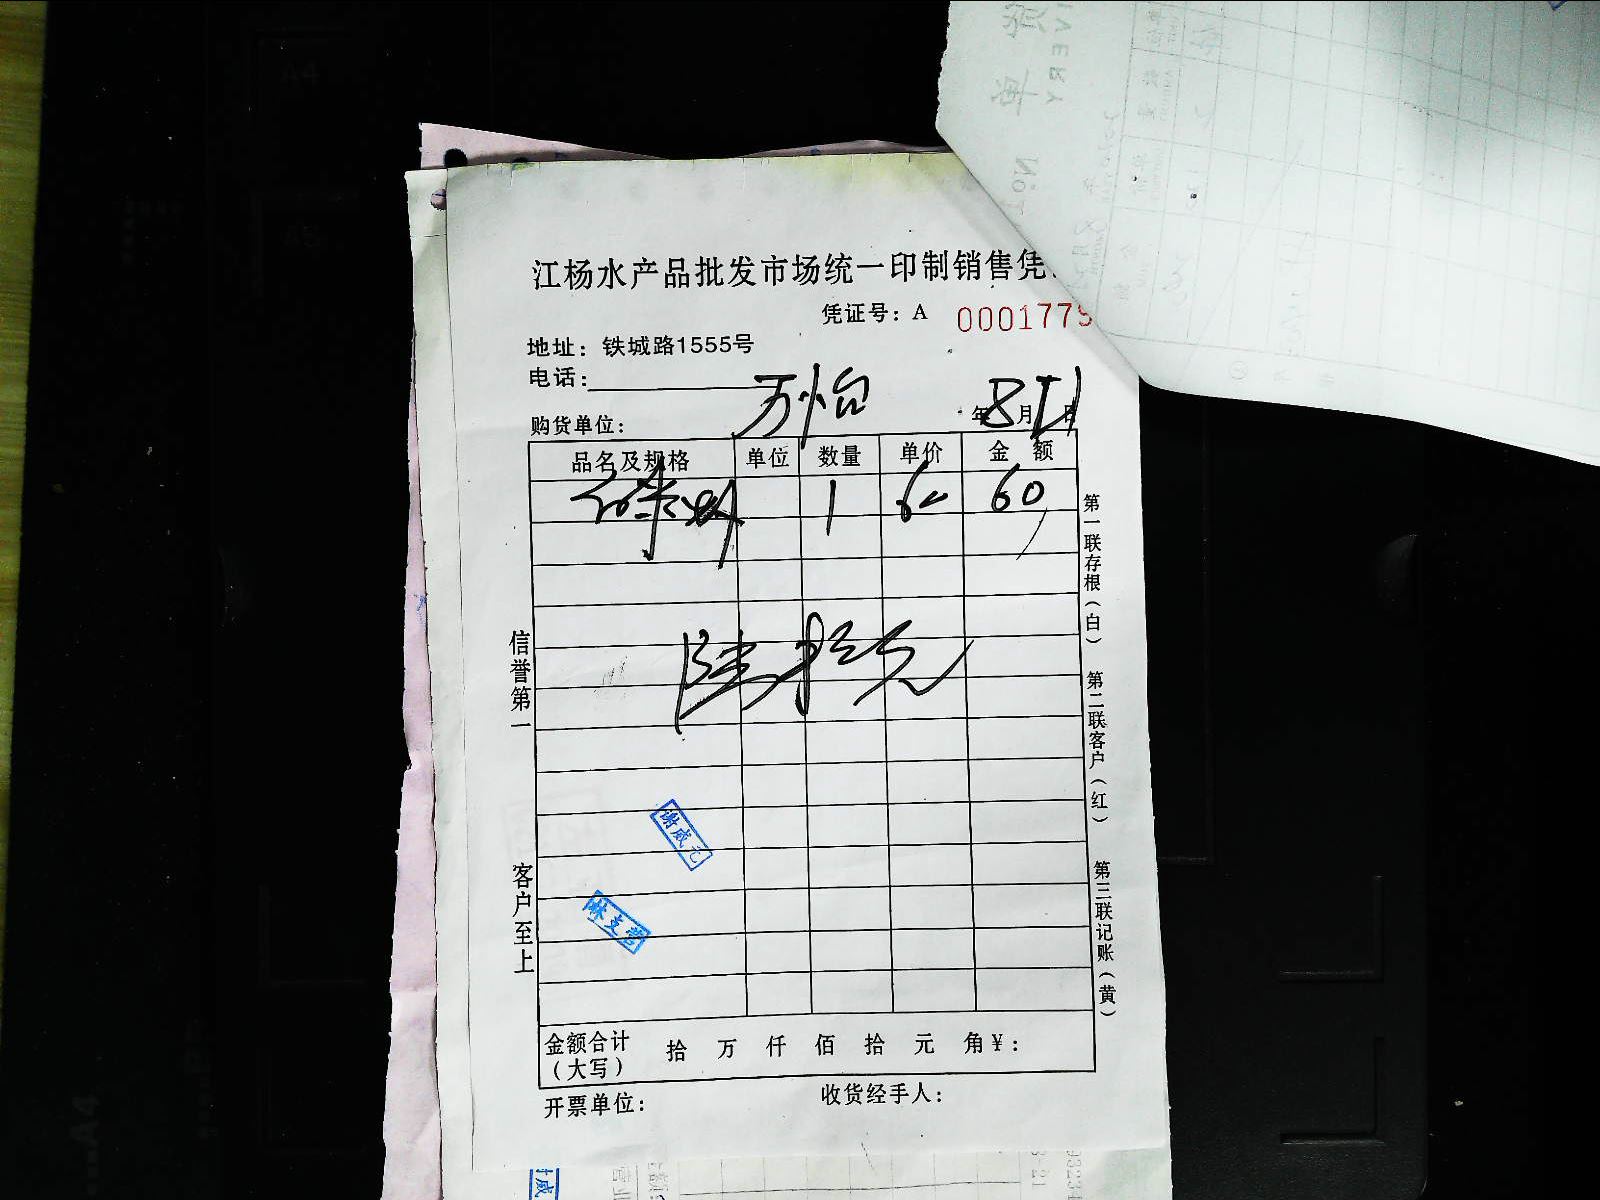 江杨水产品批发市场统一印制销售凭
凭证号：A 0001779
地址：铁城路1555号
电话：
购货单位： 万怡 年 8 月 日
品名及规格 单位 数量 单价 金额
1 60 60
陆拾元
金额合计（大写） 拾 万 仟 佰 拾 元 角 ￥：
开票单位： 收货经手人：
信誉第一
客户至上
第一联存根（白）
第二联客户（红）
第三联记账（黄）
谢威元